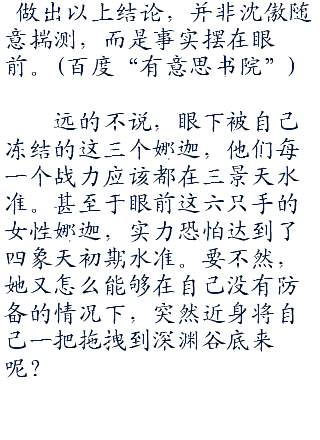 做出以上结论，并非沈傲随
意揣测，而是事实摆在眼
前。(百度“有意思书院”)
远的不说，眼下被自己
冻结的这三个娜迦，他们每
一个战力应该都在三景天水
准。甚至于眼前这六只手的
女性娜迦，实力恐怕达到了
四象天初期水准。要不然，
她又怎么能够在自己没有防
备的情况下，突然近身将自
己一把拖拽到深渊谷底来
呢？